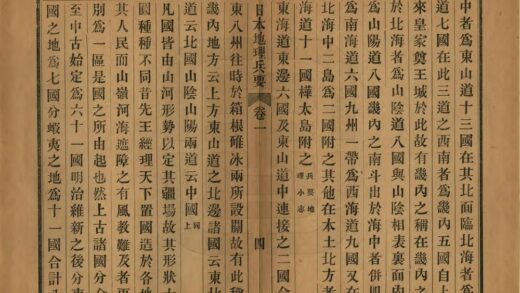 中者爲東山道十三國在其北面臨北海者爲
道七國在此三道之西南者爲畿內五國自上
來皇家奠王城於此故有畿內之稱在畿內之
於北海者爲山陰道八國與山陰相表裏面內
爲山陽道八國畿內之南斗出於海中者併四
爲南海道六國九州一帶爲西海道九國又在
北海中二島爲二國附之其他在本土北方者
海道十一國樺太島附之兵要地理小志
東海道東邊六國及東山道中連接之二國合
日本地理兵要 卷一 四
東八州往時於箱根碓冰兩所設關故有此稱
畿內地方云上方東山道之北邊諸國云東北
道云北國山陰山陽兩道云中國同上
凡國皆由山河形勢以定其疆場故其形狀大
圓種種不同昔先王經理天下置國造於各地
其人民而山嶺河海遮障之有風教難及者
別爲一區是國之所由起也然上古諸國分合
至中古始定爲六十一國明治維新之後分東
國之地爲七國分蝦夷之地爲十一國合計八